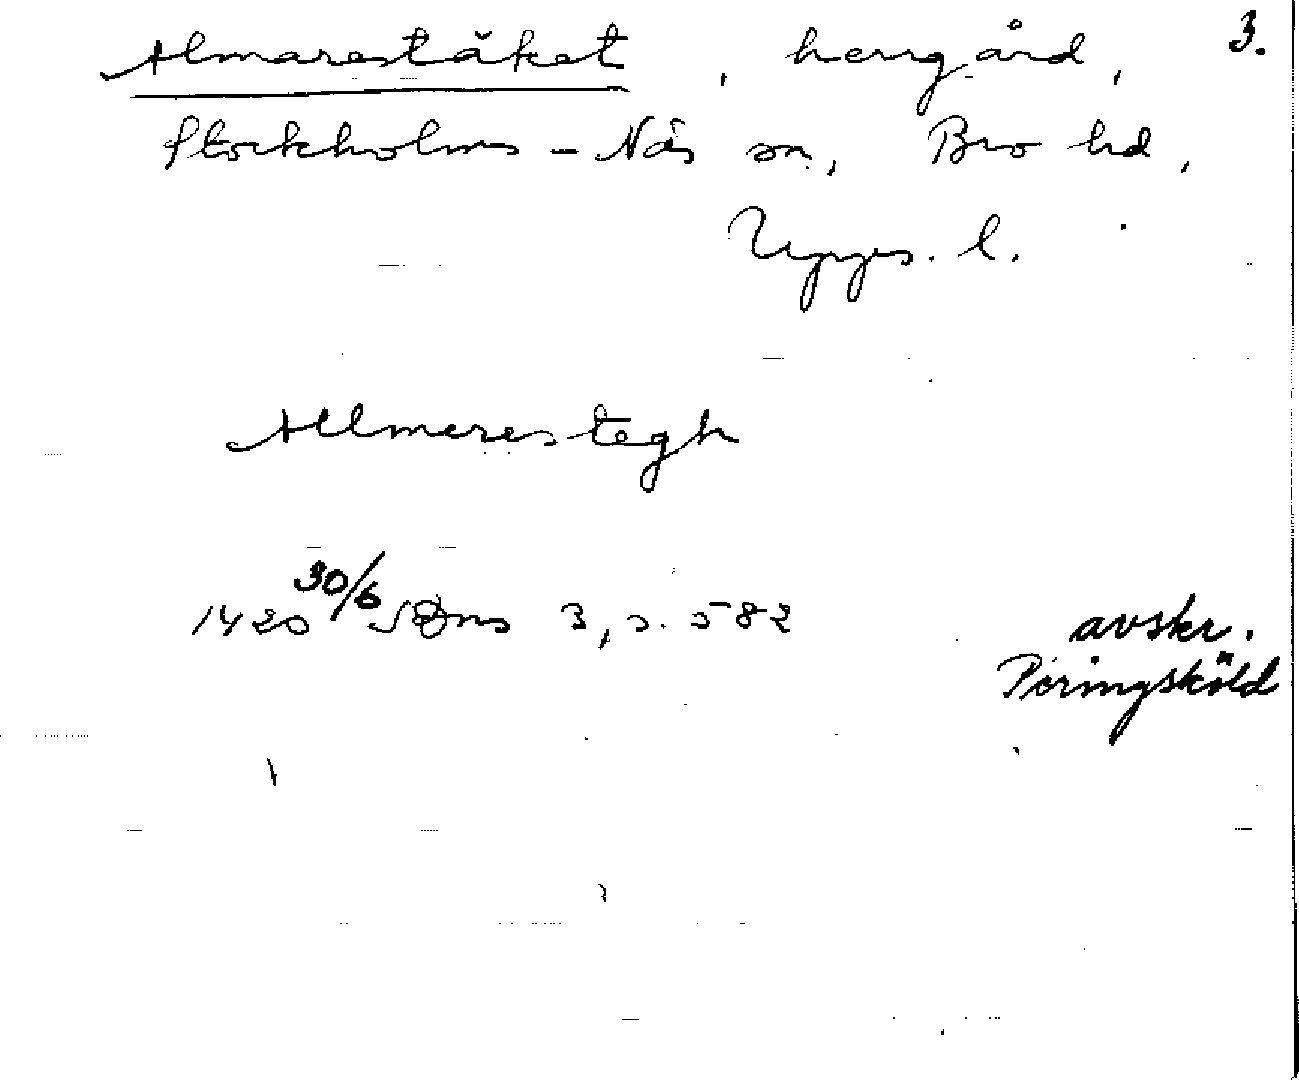 Almarestäket, herrgård, 3.
Stockholms-Näs sn, Bro hd,
Upps. l.
Allmerestegh
1420 30/6 SDns 3, s. 582
avskr.
Peringsköld